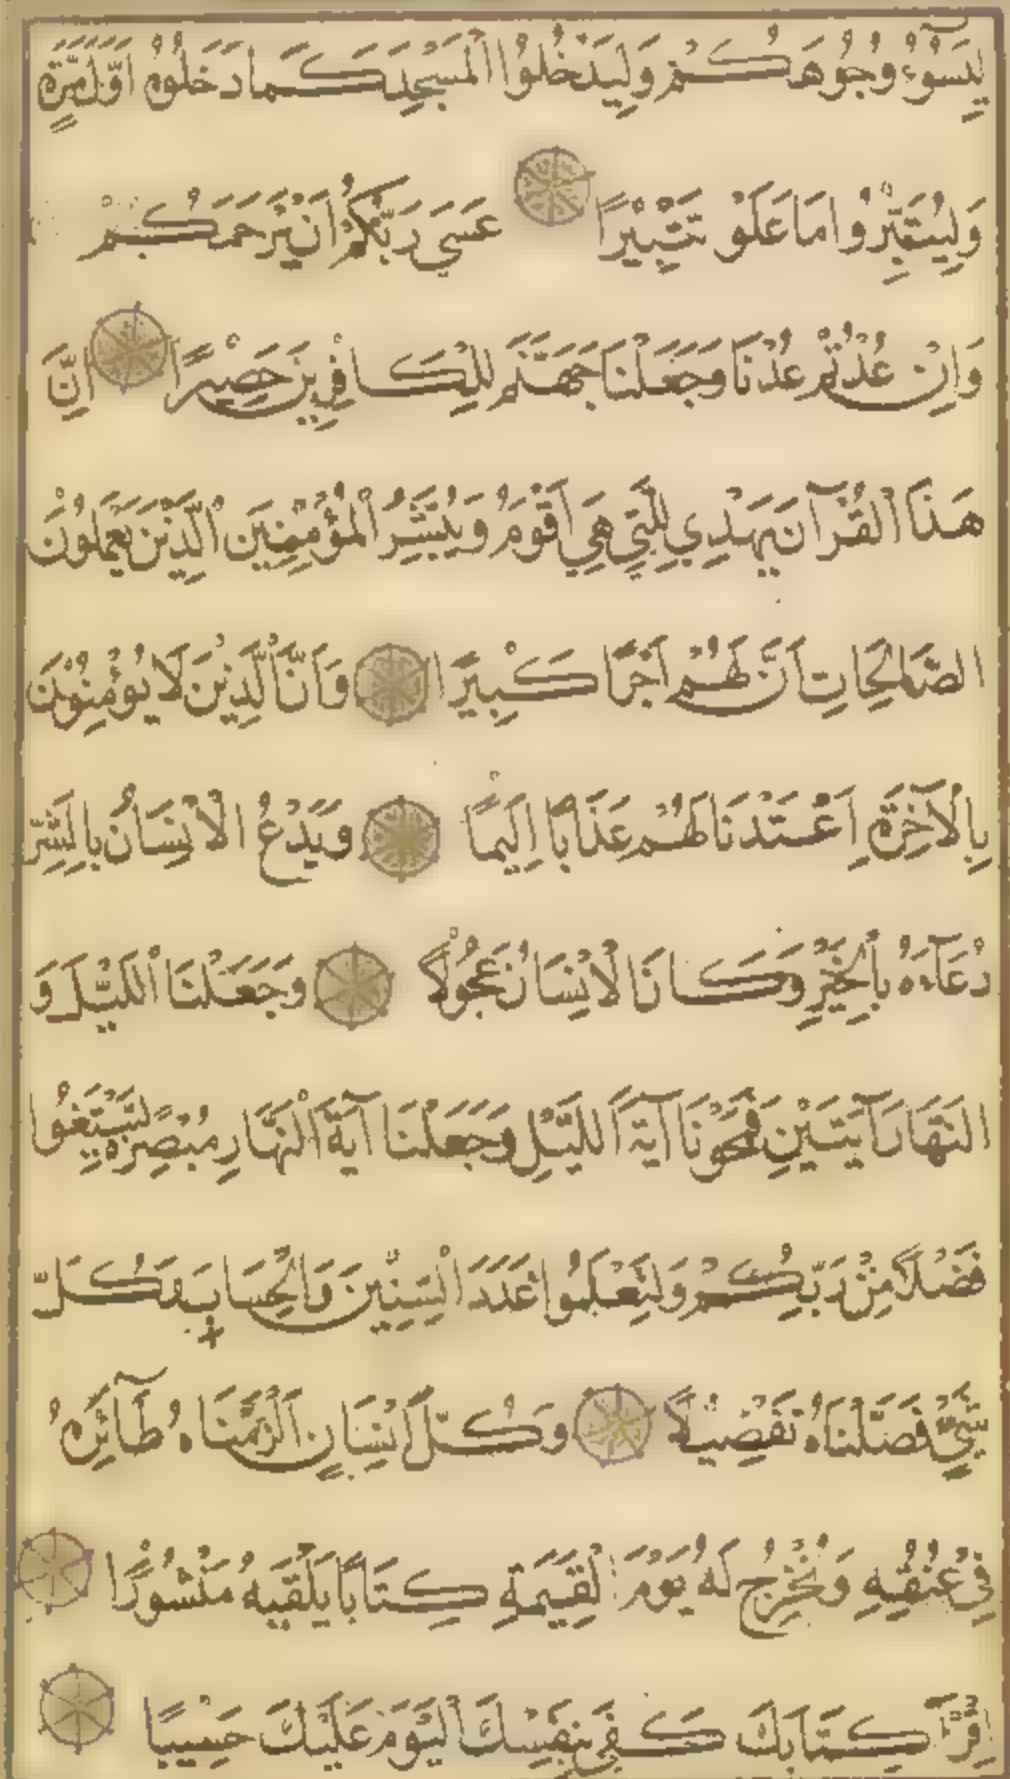 لِيَسُوءُ وُجُوهَكُمْ وَلِيَدْخُلُوا الْمَسْجِدَ كَمَا دَخَلُوهُ أَوَّلَ مَرَّةٍ
وَلِيُتَبِّرُوا مَا عَلَوْ تَتْبِيْرًا عَسَى رَبُّكُمْ اَنْ يَرْحَمَكُمْ
وَاِنْ عُدْتُمْ عُدْنَا وَجَعَلْنَا جَهَنَّمَ لِلْكَافِرِينَ حَصِيْرًا اِنَّ
هَذَا الْقُرْآنَ يَهْدِي لِلَّتِي هِيَ اَقْوَمُ وَيُبَشِّرُ الْمُؤْمِنِينَ الَّذِيْنَ يَعْمَلُوْنَ
الصَّالِحَاتِ اَنَّ لَهُمْ اَجْرًا كَبِيْرًا وَاَنَّ الَّذِيْنَ لَا يُؤْمِنُوْنَ
بِالْآخِرَةِ اَعْتَدْنَا لَهُمْ عَذَابًا اَلِيمًا وَيَدْعُ الْاِنْسَانُ بِالشَّرِّ
دُعَآءَهُ بِالْخَيْرِ وَكَانَ الْاِنْسَانُ عَجُوْلًا وَجَعَلْنَا اللَّيْلَ وَ
النَّهَارَ آيَتَيْنِ فَمَحَوْنَا آيَةَ اللَّيْلِ وَجَعَلْنَا آيَةَ النَّهَارِ مُبْصِرَةً لِتَبْتَغُوا
فَضْلًا مِنْ رَبِّكُمْ وَلِتَعْلَمُوا عَدَدَ السِّنِيْنَ وَالْحِسَابَ وَكُلَّ
شَيْءٍ فَصَّلْنَاهُ تَفْصِيْلًا وَكُلَّ اِنْسَانٍ اَلْزَمْنَاهُ طَآئِرَهُ
فِي عُنُقِهِ وَنُخْرِجُ لَهُ يَوْمَ الْقِيَمَةِ كِتَابًا يَلْقَيهُ مَنْشُورًا
اِقْرَأْ كِتَابَكَ كَفَى بِنَفْسِكَ الْيَوْمَ عَلَيْكَ حَسِيبًا